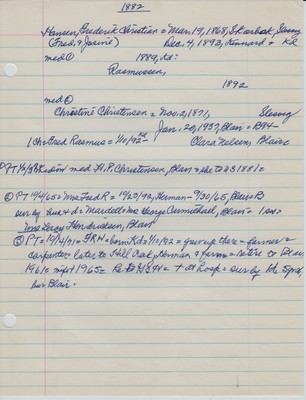 1882
Hansen, Frederik Christian = Mar. 19, 1868, Skarbak, Slesvig
(Fred, & Josine) Dec. 4, 1892, Kennard + KR
med ① 1889, Kd:
Rasmussen,
1892
med ②
Christine Christensen = Nov. 2, 1871, Slesvig
Jan. 20, 1957, Blair = B94-
1 ch: Fred Rasmus = 1/10/92 Clara Nelsen, Blair
med H.P. Christensen, Blair = she to US 1881=
① PT 1965= Mrs Fred R = 1920/92, Herman - 9/30/65, Blair = B
sur by hus + d = Mardell = Mrs George Carmichael, Blair = 1 sis =
Mrs Leroy Hendricksen, Blair
② PT = 19/4/71 = FRH = born Kd = 1/10/92 = grew up there = farmer =
carpenter = later to Hill Oak, Herman + farm = retire to Blair
1961 = wife † 1965 = † at Hosp = sur by 1d,
bur Blair.